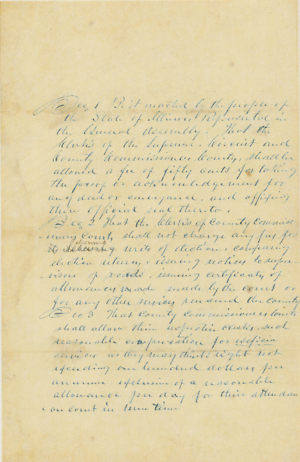 Sec 1 Be it enacted by the people of
the State of Illinois represented in
the General Assembly. That the
Clerks of the Supreme, Circuit and
County Commissioners Courts, shall be
allowed a fee of fifty cents for taking
the proof or acknowledgement for
any deed or conveyance, and affixing
their official seal thereto.
Sec 2 That the Clerks of County Commiss-
ioners Courts shall not charge any fee for
issuing writs of election, comparing
election returns, issuing notices to super-
visors of roads, issuing certificates of
allowances made by the court or
for any other services rendered the county
Sec 3 That County commissioners courts
shall allow their respective clerks, such
reasonable compensation for
services as they may think right not
exceeding one hundred dollars per
annum exclusive of a reasonable
allowance per day for their attendance
on court in term time